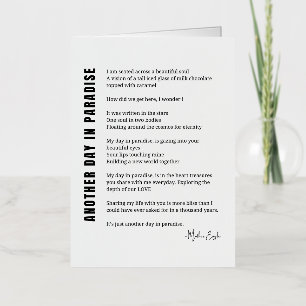 ANOTHER DAY IN PARADISE
I am seated across a beautiful soul
A vision of a tall iced glass of milk chocolate
topped with caramel
How did we get here, I wonder !
It was written in the stars
One soul in two bodies
Floating around the cosmos for eternity
My day in paradise, is gazing into your
beautiful eyes
Your lips touching mine
Building a new world together
My day in paradise, is in the heart treasures
you share with me everyday. Exploring the
depth of our LOVE
Sharing my life with you is more bliss than I
could have ever asked for in a thousand years.
It's just another day in paradise.